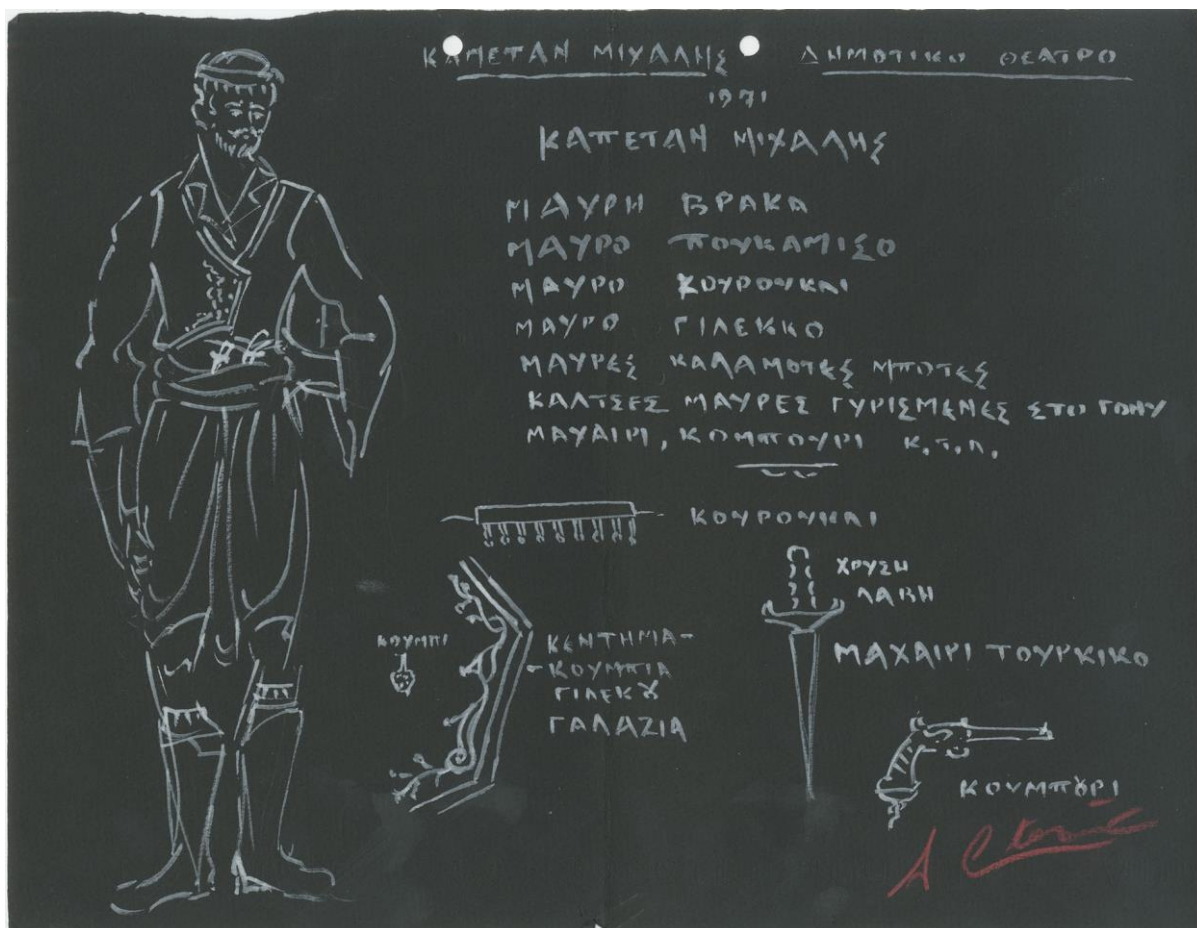 ΚΑΠΕΤΑΝ ΜΙΧΑΛΗΣ ΔΗΜΟΤΙΚΟ ΘΕΑΤΡΟ
1971
ΚΑΠΕΤΑΝ ΜΙΧΑΛΗΣ
ΜΑΥΡΗ ΒΡΑΚΑ
ΜΑΥΡΟ ΠΟΥΚΑΜΙΣΟ
ΜΑΥΡΟ ΚΟΥΡΟΥΚΛΙ
ΜΑΥΡΟ ΓΙΛΕΚΚΟ
ΜΑΥΡΕΣ ΚΑΛΑΜΟΤΕΣ ΜΠΟΤΕΣ
ΚΑΛΤΣΕΣ ΜΑΥΡΕΣ ΓΥΡΙΣΜΕΝΕΣ ΣΤΟ ΓΟΝΥ
ΜΑΧΑΙΡΙ, ΚΟΜΠΟΥΡΙ Κ.Τ.Λ.
ΚΟΥΡΟΥΚΛΙ
ΧΡΥΣΗ
ΛΑΒΗ
ΚΟΥΜΠΙ
ΚΕΝΤΗΜΑ-
-ΚΟΥΜΠΙΑ
ΓΙΛΕΚȢ
ΓΑΛΑΖΙΑ
ΜΑΧΑΙΡΙ ΤΟΥΡΚΙΚΟ
ΚΟΥΜΠȢΡΙ